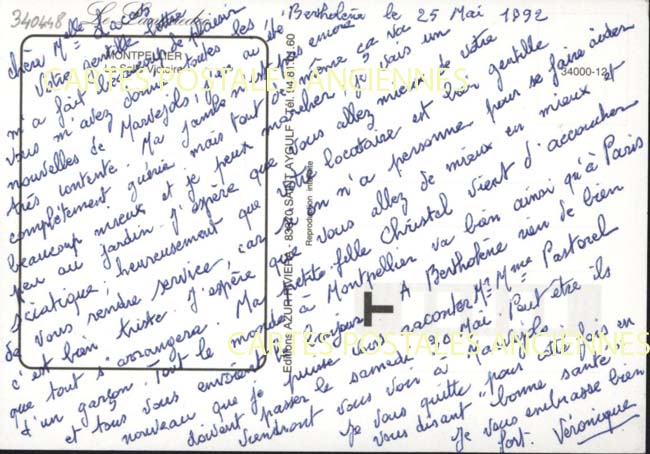 340448
Bertholène le 25 Mai 1992
Chère Melle
Votre gentille lettre
m'a fait beaucoup de plaisir
vous m'avez donné toutes les
nouvelles de Marvejols j'ai été
très contente. Ma jambe n'est pas encore
complètement guérie mais tout de même ça va
beaucoup mieux et je peux marcher je fais un
peu au jardin. J'espère que vous allez mieux de votre
sciatique, heureusement que votre locataire est bien gentille
de vous rendre service, car si on n'a personne pour se faire aider
c'est bien triste. J'espère que vous allez de mieux en mieux et
que tout s'arrangera. Ma petite fille Christel vient d'accoucher
d'un garçon. Tout le monde à Montpellier va bien ainsi qu'à Paris
et tous vous envoient le bonjour. A Bertholène rien de bien
nouveau que je puisse vous raconter. Mr Mme Pastorel
doivent passer le samedi Mai. Peut être ils
viendront vous voir à Marvejols.
Je vous quitte pour une fois en
vous disant "bonne santé"
Je vous embrasse bien
fort. Véronique
MONTPELLIER
34000-12
Editions AZUR RIVIERA - 83370 SAINT AYGULF - Tél. 94.81.01.60
Reproduction interdite
T
CARTES POSTALES ANCIENNES
CARTES POSTALES ANCIENNES